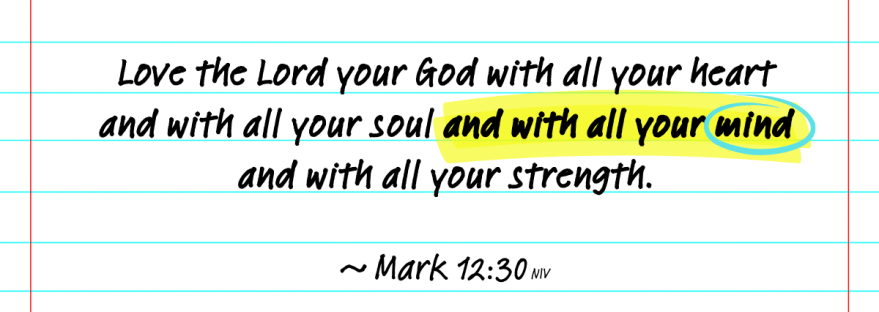 Love the Lord your God with all your heart
and with all your soul and with all your mind
and with all your strength.
~ Mark 12:30 NIV